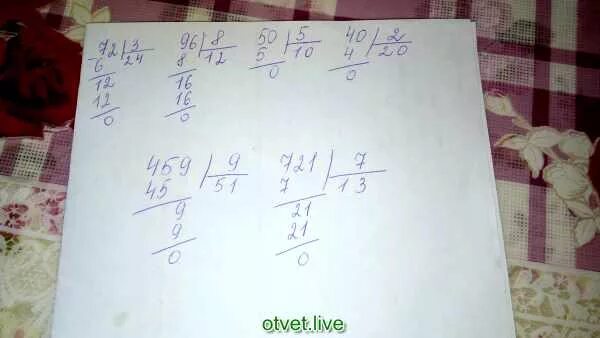 72 3 96 8 50 5 40 2
6 24 8 12 5 10 4 20
12 16 0 0
12 16
0 0
459 9 721 7
45 51 7 13
9 21
9 21
0 0
otvet.live